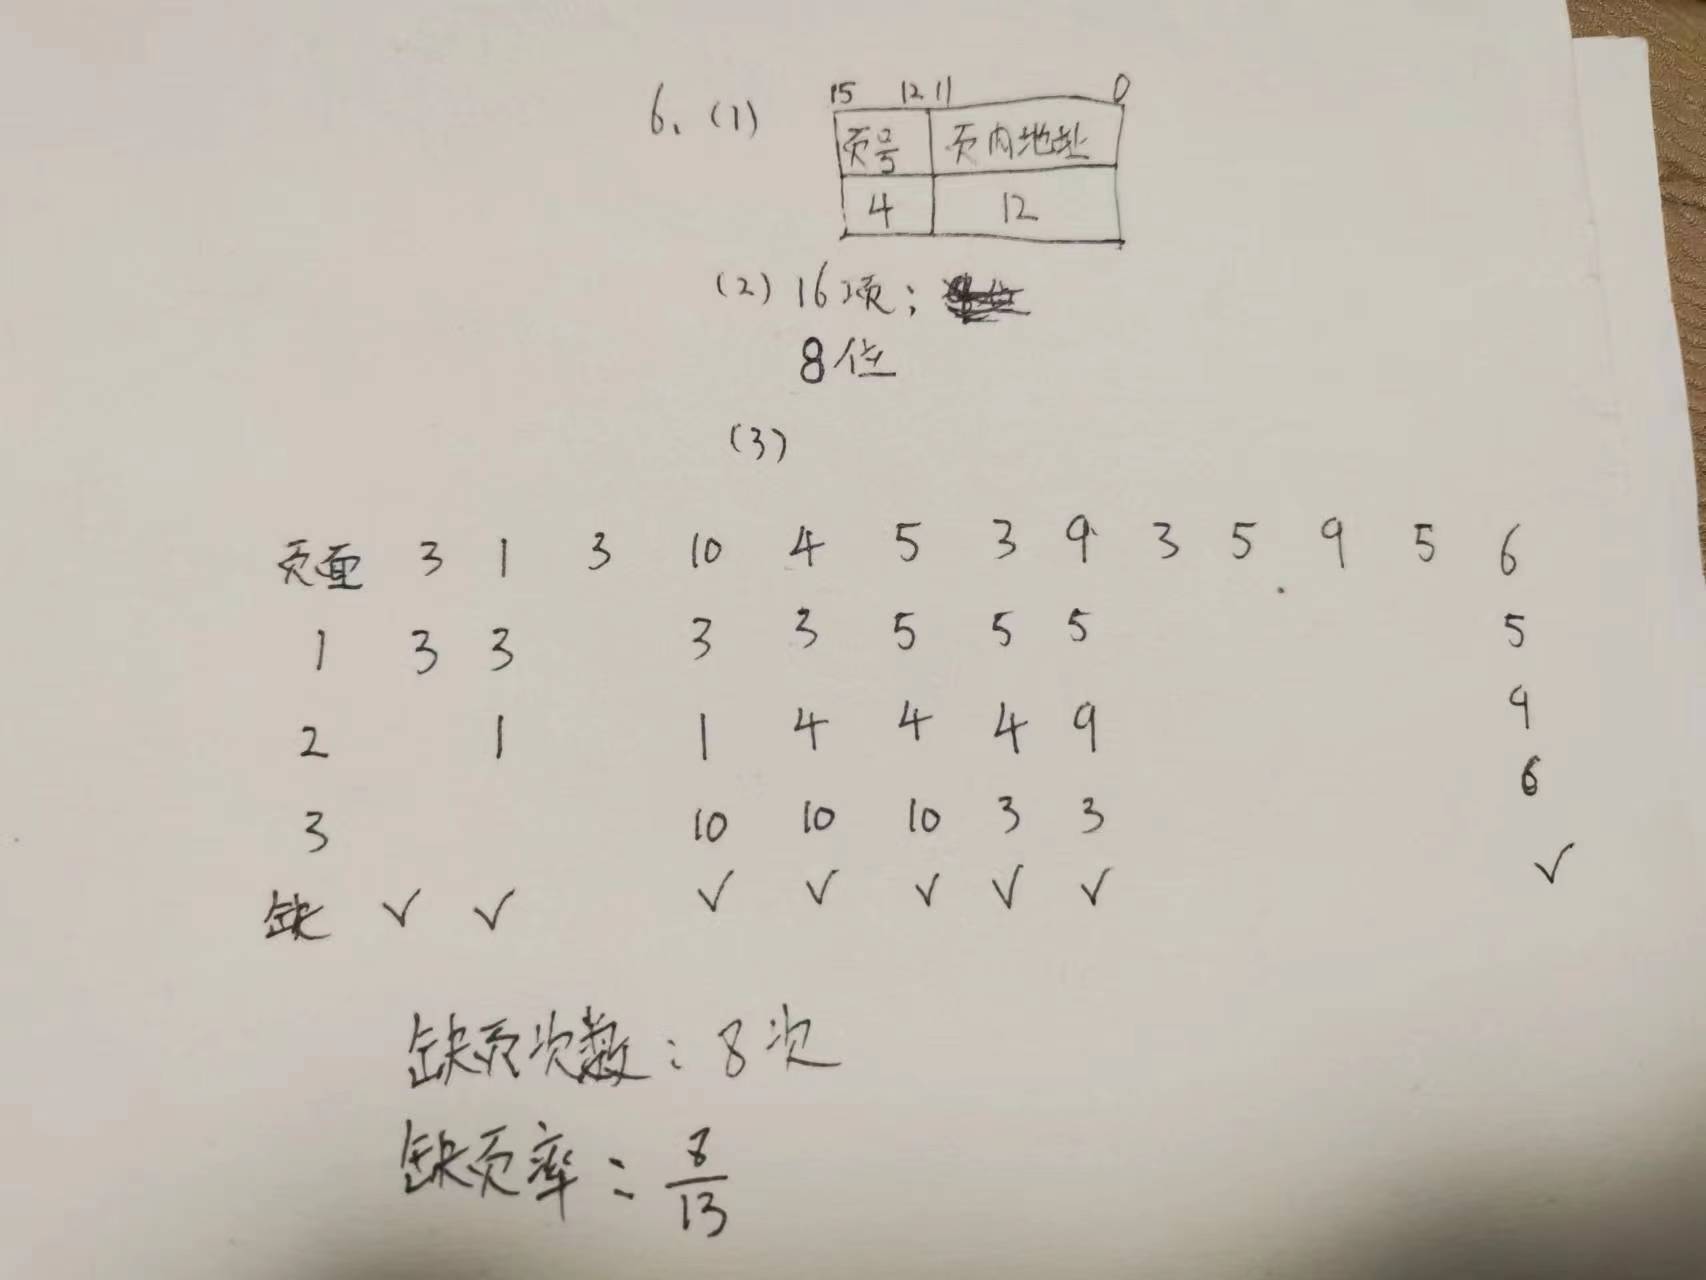 6、(1)
15 12 11 0
页号 页内地址
4 12
(2) 16项；
8位
(3)
页面 3 1 3 10 4 5 3 9 3 5 9 5 6
1 3 3 3 3 5 5 5 5
2 1 1 4 4 4 9 9
3 10 10 10 3 3 6
缺 √ √ √ √ √ √ √ √
缺页次数：8次
缺页率 = 8/13